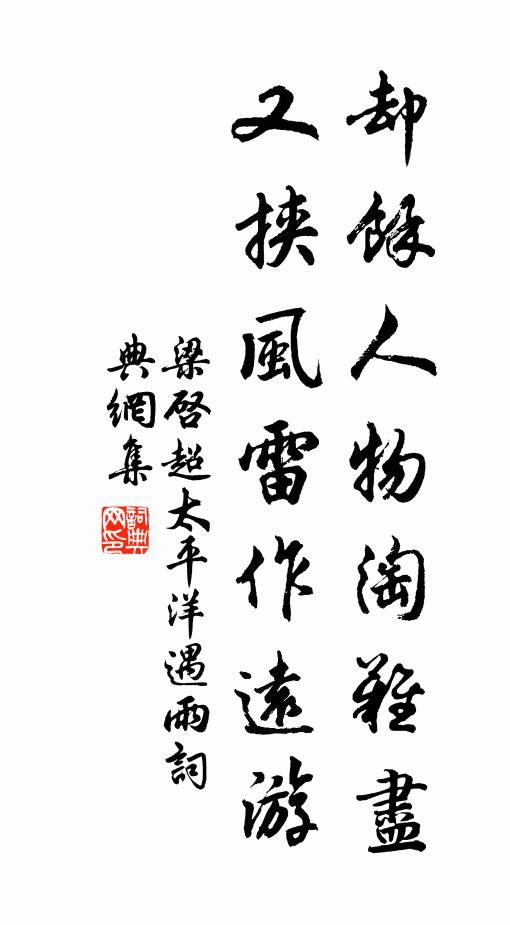 却餘人物淘難盡
又挾風雷作遠游
梁啓超太平洋遇雨詞
典網集
詞典網印